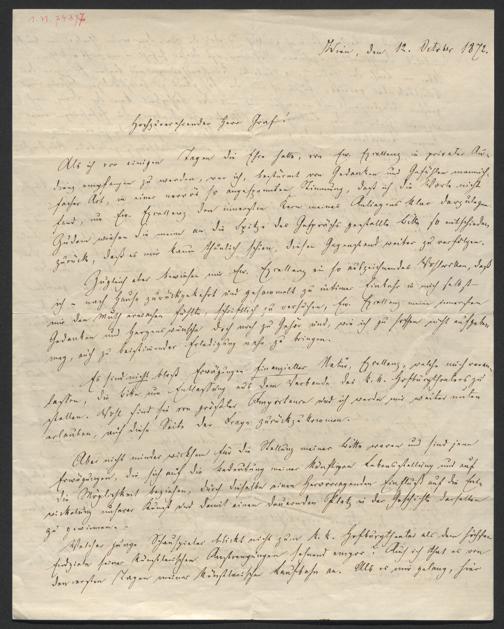 Wien, den 12. October 1872.
Hochzuverehrender Herr Graf!
Als ich vor einigen Tagen die Ehre hatte, von Ew. Exzellenz in privater Au-
dienz empfangen zu werden, war ich, bestürmt von Gedanken und Gefühlen mannich-
facher Art, in einer nervös so angespannten Stimmung, daß ich die Worte nicht
fand, um Ew. Exzellenz den innersten Kern meines Anliegens klar darzulegen.
Zudem wiesen die meine an die Spitze des Gesprächs gestellte Bitte so entschieden
zurück, daß es mir kaum thunlich schien, diesen Gegenstand weiter zu verfolgen.
Zugleich aber bewiesen mir Ew. Exzellenz ein so auszeichnendes Wohlwollen, daß
ich – nach Hause zurückgekehrt und gesammelt zu intimer Einkehr in mich selbst –
mir den Muth erwachsen fühlte, schriftlich zu versuchen, Ew. Exzellenz meine innersten
Gedanken und Herzenswünsche doch noch zu Gehör und, wie ich zu hoffen nicht aufgeben
mag, auch zu beistimmender Erledigung nahe zu bringen.
Es sind nicht bloß Erwägungen finanzieller Natur, Exzellenz, welche mich veran-
laßten, die Bitte um Entlassung aus dem Verbande des k. k. Hofburgtheaters zu
stellen. Wohl sind sie von größter Importance und ich werde mir weiter unten
erlauben, auf diese Seite der Frage zurückzukommen.
Aber nicht minder wirksam für die Stellung meiner Bitte waren und sind jene
Erwägungen, die sich auf die Bedeutung meiner künftigen Lebensstellung und auf
die Möglichkeit beziehen, durch dieselbe einen hervorragenden Einfluß auf die Ent-
wickelung unserer Kunst und damit einen dauernden Platz in der Geschichte derselben
zu gewinnen.
Welcher junge Schauspieler blickt nicht zum k. k. Hofburgtheater als dem höchsten
Endziele seiner künstlerischen Anstrengungen sehnend empor? Auch ich that es von
den ersten Tagen meiner künstlerischen Laufbahn an. Als es mir gelang, hier